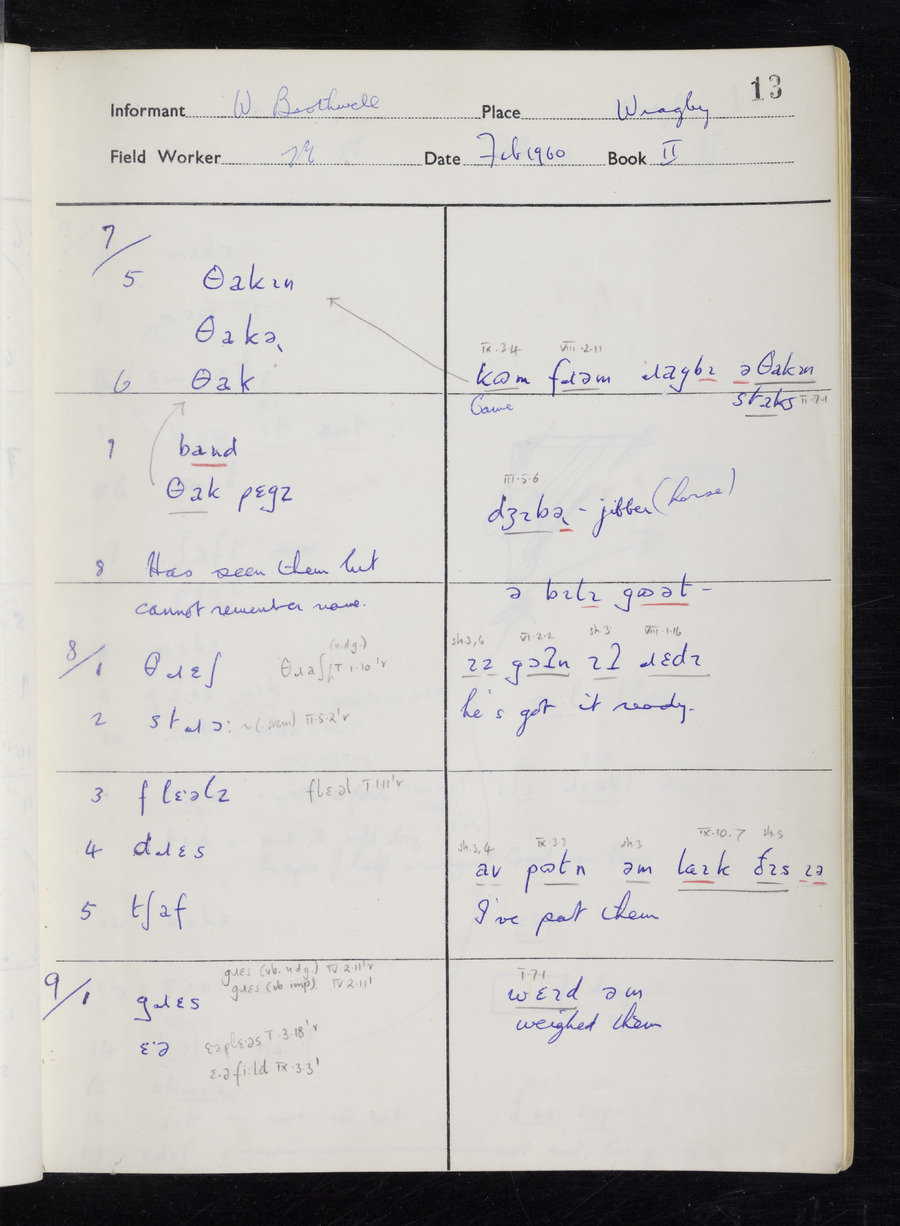 13
Informant W Brothwell Place Wragby
Field Worker Date Feb 1960 Book II
7/
5 θakɪn
θakə
6 θak
7 band
θak pɛgz
8 Has seen them but
cannot remember name.
8/1 θɹɛʃ θɹaʃ (n.dg.) I 1·10'r
2 stɹɔ: ~ (stem) II·5·2'r
3 flɛ·əlz flɛ·əl I 1·11'r
4 dɹɛs
5 tʃaf
9/1 gɹɛs gɹɛs (vb. ndg.) IV 2·11'r
gɹɛs (vb imp) IV 2·11'
ɛ·ə I·3·18'r
ɛ·əfi:ld IX·3·3'
IX·3·4 VIII·2·11
kʊm fɹəm ɹagbɪ ə θakɪn
Came staks II·7·1
III·5·6
dʒɪbə - jibber (horse)
ə bɪtɪ gʊət -
sh.3,6 VI·2·2 sh.3 VIII·1·16
ɹɛdɪ
he's got it ready.
sh.3,4 IX·3·3 sh.3 IX·10,7 sh.5
av pʊtn əm laɪk ðɪs ɪə
I've put them
I·7·1
wɛɪd əm
weighed them